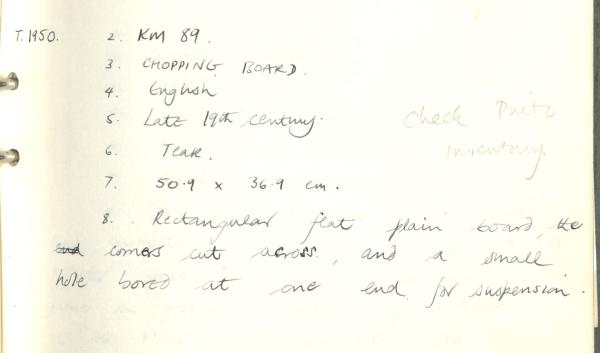 T. 1950. 2. KM 89.
3. CHOPPING BOARD.
4. English
5. Late 19th century.
Check
6. Teak.
inventory.
7. 50.9 x 36.9 cm.
8. Rectangular flat plain board, the
corners cut across, and a small
hole bored at one end for suspension.